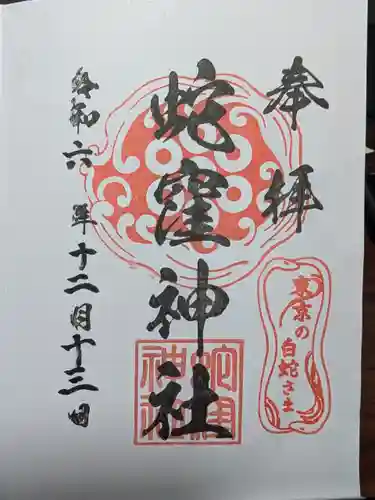 奉拝
蛇窪神社
令和六年十二月十三日
東京の
白蛇さま
蛇窪
神社